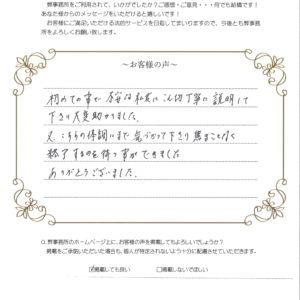 弊事務所をご利用されて、いかがでしたか？ご感想・ご意見・・・何でも結構です！
あなた様からのメッセージをいただけると嬉しいです！
お客様にご満足いただける法的サービスを目指してまいりますので、今後とも弊事務
所をよろしくお願い致します。
～お客様の声～
初めての事で 不安な私共に 親切丁寧に 説明して
下さり大変助かりました。
又、こちらの体調にまで 気づかって下さり 焦ることなく
終了するのを待つ事ができました
ありがとうございました。
Q.弊事務所のホームページ上に、お客様の声を掲載してもよろしいでしょうか？
掲載をご承諾いただいた場合も、個人が特定されないよう十分に配慮させていただきます。
☑掲載しても良い □掲載しないでほしい